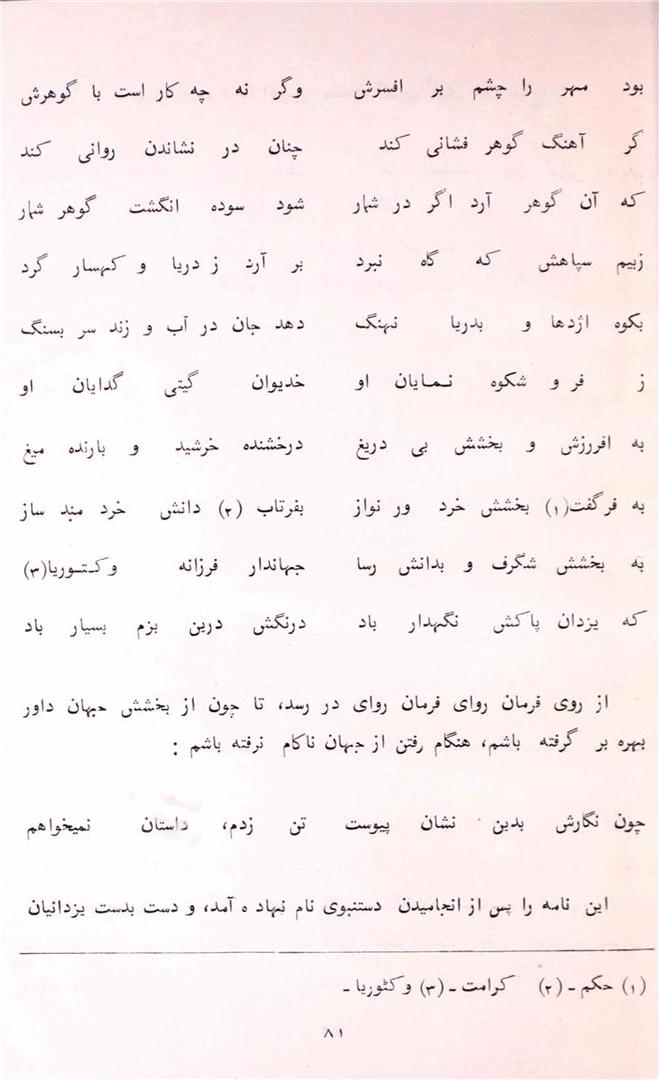 بود مهر را چشم بر افسرش وگر نه چه کار است با گوهرش
گر آهنگ گوهر فشانی کند چنان در نشاندن روانی کند
که آن گوهر آرد اگر در شمار شود سوده انگشت گوهر شمار
زبیم سپاهش که گاه نبرد بر آرد ز دریا و کہسار گرد
بکوه اژدها و بدریا نہنگ دهد جان در آب و زند سر بسنگ
ز فر و شکوه نمایان او خدیوان گیتی گدایان او
به افررزش و بخشش بی دریغ درخشنده خرشید و بارنده میغ
به فرگفت(۱) بخشش خرد ور نواز بفرتاب (۲) دانش خرد مند ساز
به بخشش شگرف و بدانش رسا جہاندار فرزانه وکتوریا(۳)
که یزدان پاکش نگہدار باد درنگش درین بزم بسیار باد
از روی فرمان روای فرمان روای در رسد، تا چون از بخشش جہان داور
بہره بر گرفته باشم، هنگام رفتن از جہان ناکام نرفته باشم :
چون نگارش بدین نشان پیوست تن زدم، داستان نمیخواهم
این نامه را پس از انجامیدن دستنبوی نام نہاد ه آمد، و دست بدست یزدانیان
(۱) حکم ـ (۲) کرامت ـ (۳) وکٹوریا ـ
۸۱